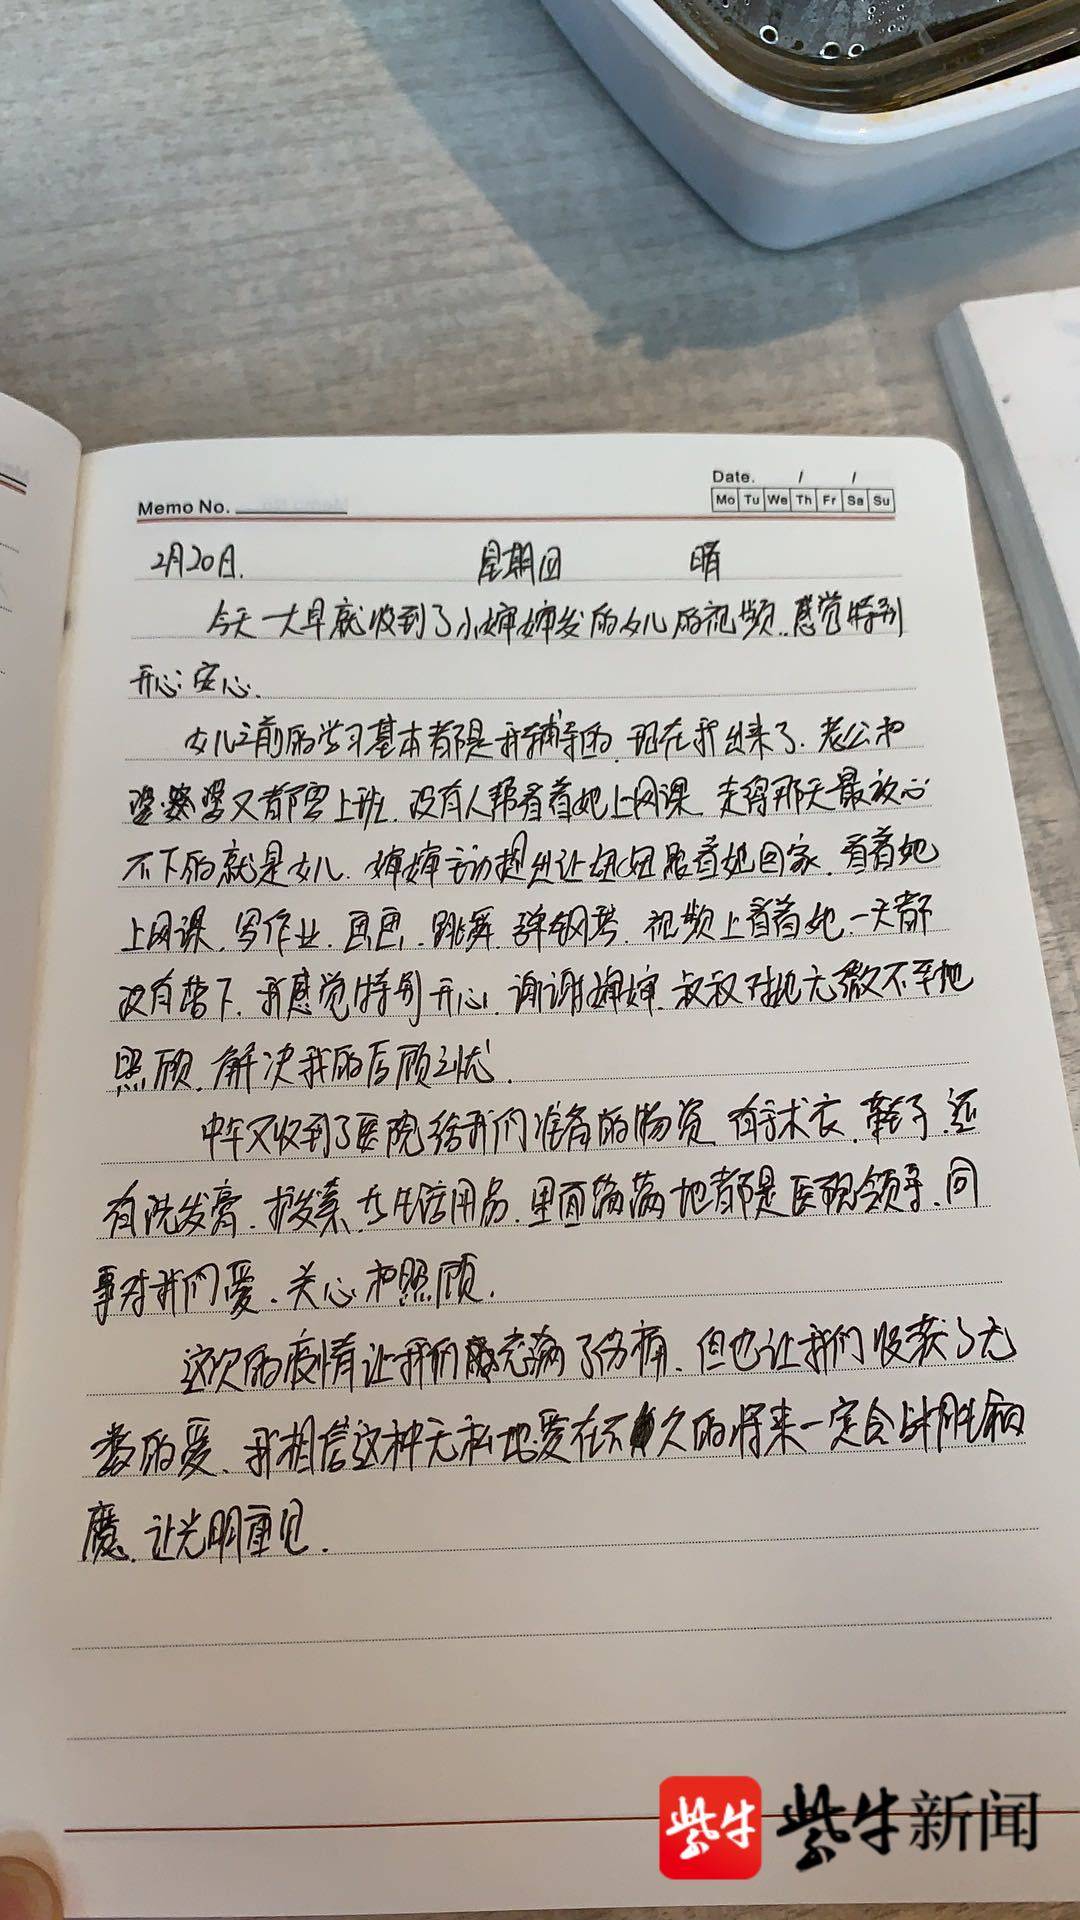 Memo No.
Date. / /
Mo Tu We Th Fr Sa Su
2月20日. 星期四 晴
今天一大早就收到了小婶婶发的女儿的视频..感觉特别
开心;安心.
女儿之前的学习基本都是我辅导的.现在我出来了.老公和
婆婆又都要上班.没有人帮看着她上网课.走得那天最放心
不下的就是女儿.婶婶主动提出让妞妞跟着她回家.看着她
上网课.写作业.画画.跳舞.弹钢琴.视频上看着她一天都
没有落下.我感觉特别开心.谢谢婶婶.叔叔对她无微不至地
照顾.解决我的后顾之忧.
中午又收到了医院给我们准备的物资.有手术衣.鞋子.还
有洗发膏.护发素.大生活用品.里面满满地都是医院领导.同
事对我们爱.关心和照顾.
这次的疫情让我们充满了伤痛.但也让我们收获了无
数的爱.我相信这种无私地爱在不久的将来一定会战胜病
魔.让光明重见.
紫牛
紫牛新闻